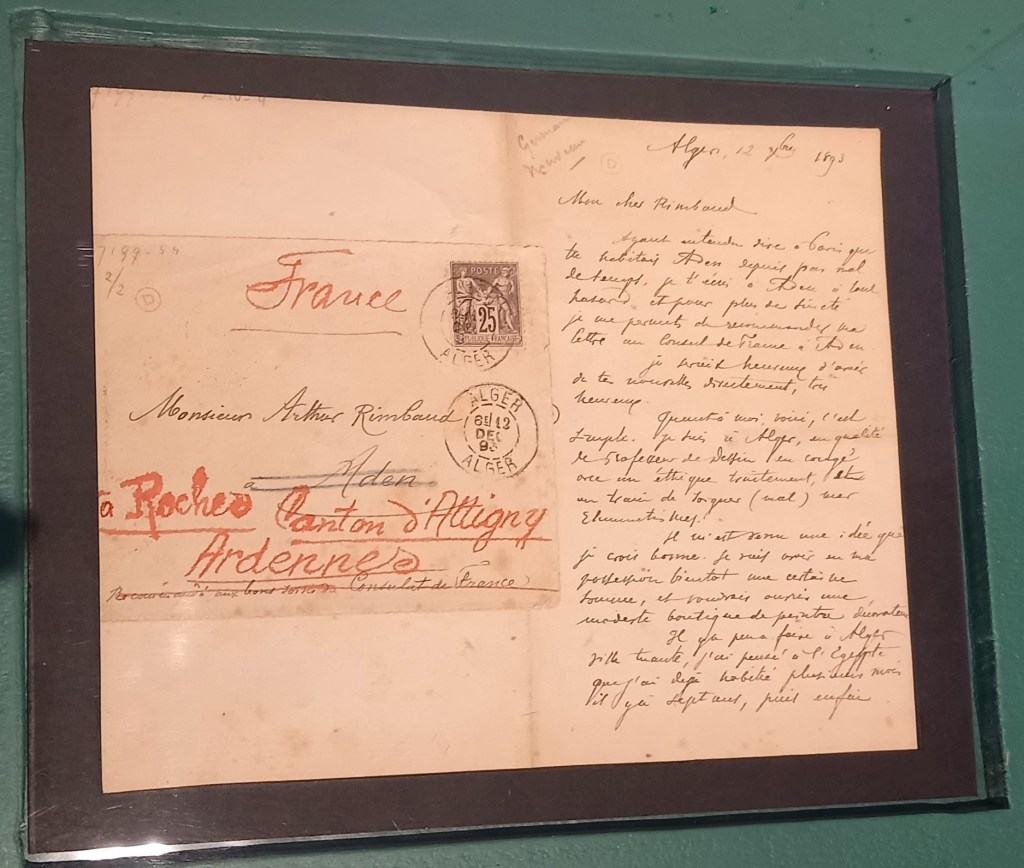 7199-54
2/2
D
France
POSTE
25
REPUBLIQUE FRANÇAISE
ALGER
ALGER
12
DEC
93
ALGER
Monsieur Arthur Rimbaud
à Aden
à Roche Canton d'Attigny
Ardennes
Recommandé aux bons soins du Consulat de France
Germain
Nouveau
D
Alger, 12 Xbre 1893
Mon cher Rimbaud
Ayant entendu dire à Paris que
tu habitais Aden depuis pas mal
de temps, je t'écris à Aden à tout
hasard et pour plus de sûreté
je me permets de recommander ma
lettre au Consul de France à Aden
je serais heureux d'avoir
de tes nouvelles directement, très
heureux.
Quant à moi, voici, c'est
simple. je suis à Alger, en qualité
de Professeur de Dessin en congé
avec un étique traitement, et
en train de soigner (mal) mes
Rhumatismes.
Il m'est venu une idée que
je crois bonne. Je vais avoir en ma
possession bientôt une certaine
somme, et voudrais ouvrir une
modeste boutique de peintre décorateur
Il y a peu à faire à Alger
ville tuante, j'ai pensé à l'Egypte
que j'ai déjà habitée plusieurs mois
il y a sept ans, puis enfin